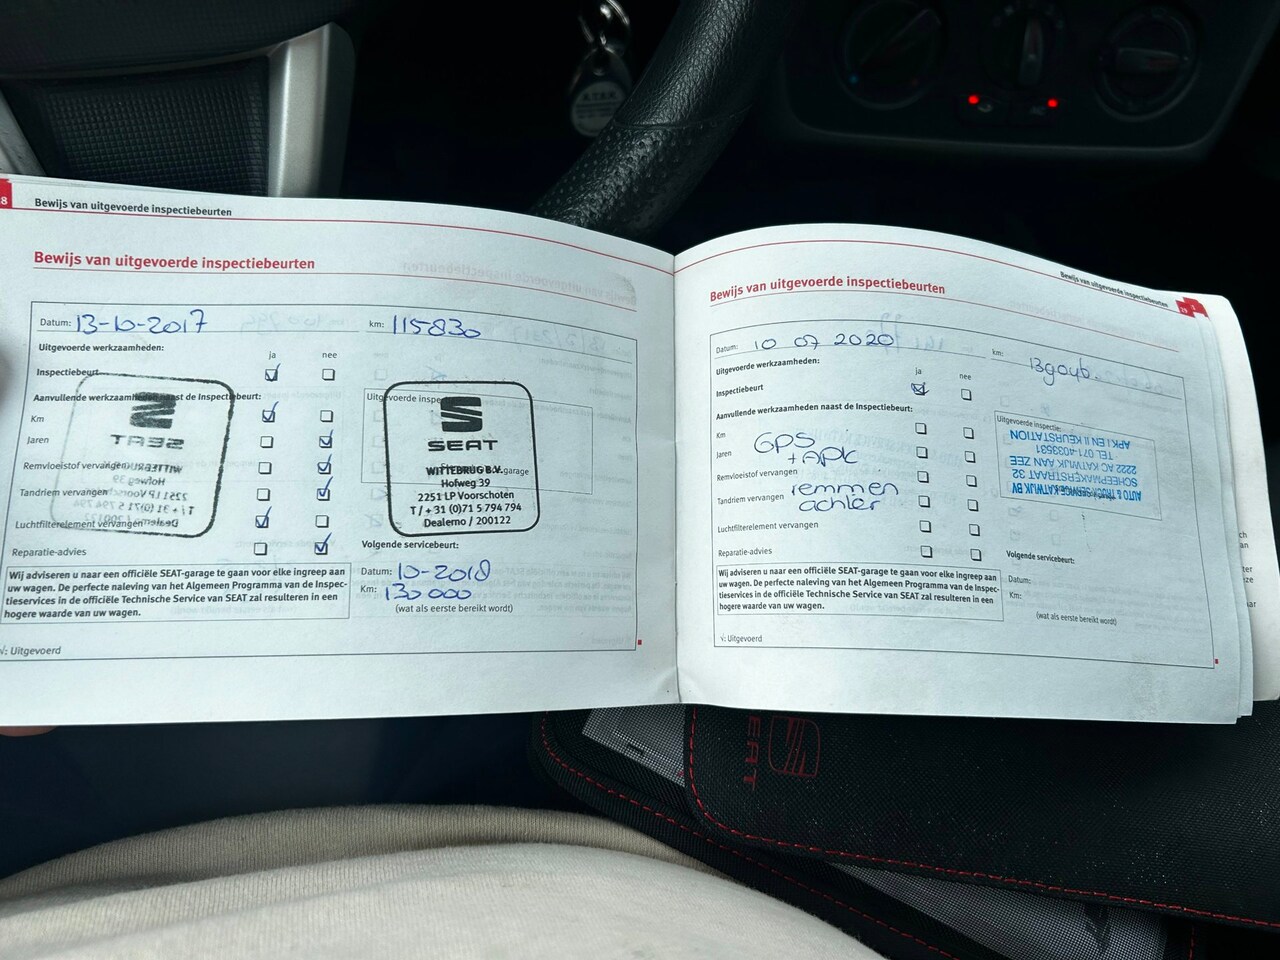 8
Bewijs van uitgevoerde inspectiebeurten
Bewijs van uitgevoerde inspectiebeurten
Datum: 13-10-2017
km: 115830
Uitgevoerde werkzaamheden:
ja nee
Inspectiebeurt
Aanvullende werkzaamheden naast de Inspectiebeurt:
Km
Jaren
Remvloeistof vervangen
Tandriem vervangen
Luchtfilterelement vervangen
Reparatie-advies
SEAT
Uitgevoerde inspe
SEAT
WITTEBRUG B.V.
garage
Hofweg 39
2251 LP Voorschoten
T / + 31 (0)71 5 794 794
Dealerno / 200122
Volgende servicebeurt:
Datum: 10-2018
Km: 130 000
(wat als eerste bereikt wordt)
Wij adviseren u naar een officiële SEAT-garage te gaan voor elke ingreep aan
uw wagen. De perfecte naleving van het Algemeen Programma van de Inspec-
tieservices in de officiële Technische Service van SEAT zal resulteren in een
hogere waarde van uw wagen.
√: Uitgevoerd
Bewijs van uitgevoerde inspectiebeurten
19
Bewijs van uitgevoerde inspectiebeurten
Datum: 10 07 2020
km:
Uitgevoerde werkzaamheden:
ja nee
Inspectiebeurt
Aanvullende werkzaamheden naast de Inspectiebeurt:
Km
Jaren
GPS
+ APK
Remvloeistof vervangen
Tandriem vervangen
remmen
achter
Luchtfilterelement vervangen
Reparatie-advies
Uitgevoerde inspectie:
AUTO & TRUCK SERVICE KATWIJK BV
SCHEEPMAKERSTRAAT 32
2222 AC KATWIJK AAN ZEE
TEL. 071-4033531
APK I EN II KEURSTATION
Volgende servicebeurt:
Datum:
Km:
(wat als eerste bereikt wordt)
Wij adviseren u naar een officiële SEAT-garage te gaan voor elke ingreep aan
uw wagen. De perfecte naleving van het Algemeen Programma van de Inspec-
tieservices in de officiële Technische Service van SEAT zal resulteren in een
hogere waarde van uw wagen.
√: Uitgevoerd
SEAT